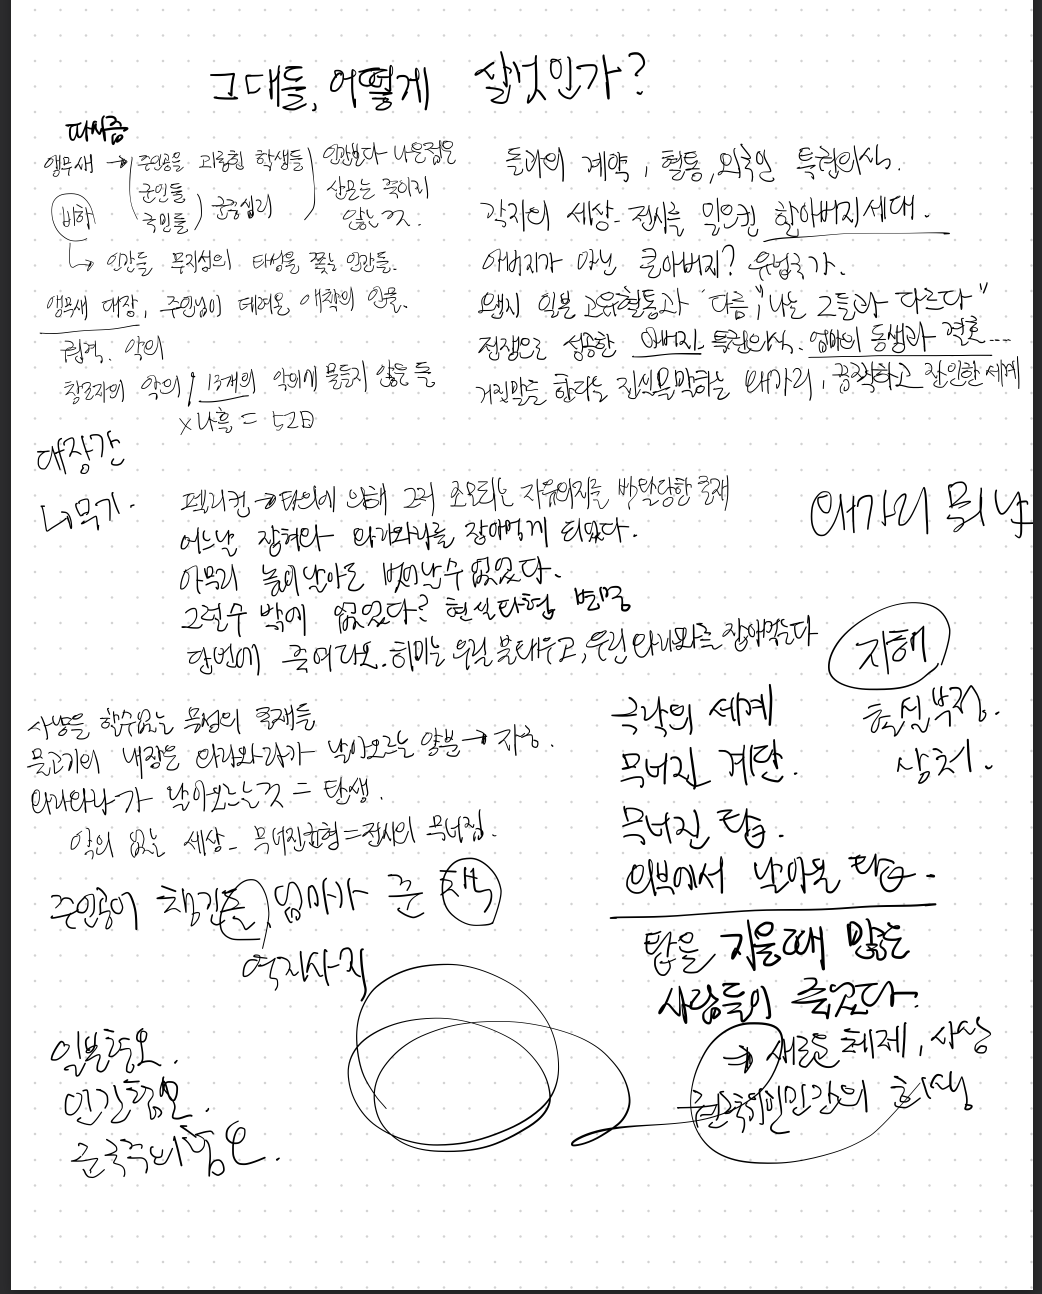 그대들, 어떻게 살것인가?
따사룸
앵무새 → 주인공을 괴롭힌 학생들
군인들
국민들 ) 군중심리
인간보다 나은점은
산모는 죽이지
않는 것.
비하
↳ 인간들 무지성의 타성을 쫓는 인간들.
앵무새 대장, 주인님이 데려온 애착의 인물.
권력, 악의
창조자의 악의, 13개의 악의에 물들지 않은 돌
x 나흘 = 52日
돌과의 계약, 혈통, 외국인 특권의식.
각자의 세상 - 전시를 일으킨 할아버지세대.
아버지가 아닌 큰아버지? 유럽국가.
왠지 일본 고유혈통과 "다름", "나는 그들과 다르다"
전쟁으로 성공한 아버지 특권의식. 엄마의 동생과 결혼....
거짓말을 한다는 진실목막하는 왜가리, 끔찍하고 잔인한 세계
대장간
↳ 무기.
펠리컨 → 타의에 의해 그저 초오되는 자유의지를 박탈당한 존재
어느날 잡혀와 와라와라를 잡아먹게 되었다.
아무리 높이 날아도 벗어날수 없었다.
그럴수 밖에 없었다? 현실타협 변명
단번에 죽여다오. 히미는 우릴 불태우고, 우린 와라와라를 잡아먹는다
왜가리 뭐냐
자해
현실부정.
상처.
사냥을 할수없는 무성의 존재들
물고기의 내장은 와라와라가 날아오르는 양분 → 자유.
와라와라가 날아오르는것 = 탄생.
악의 없는 세상 - 무너진균형 = 전시의 무너짐.
극락의 세계
무너진 계단.
무너진 탑.
외부에서 날아온 탑.
주인공이 챙긴돌, 엄마가 준 책
역지사지
탑을 지을때 많은
사람들이 죽었다.
→ 새로운 체제, 사상
일본혐오.
인간혐오.
군국주의혐오.